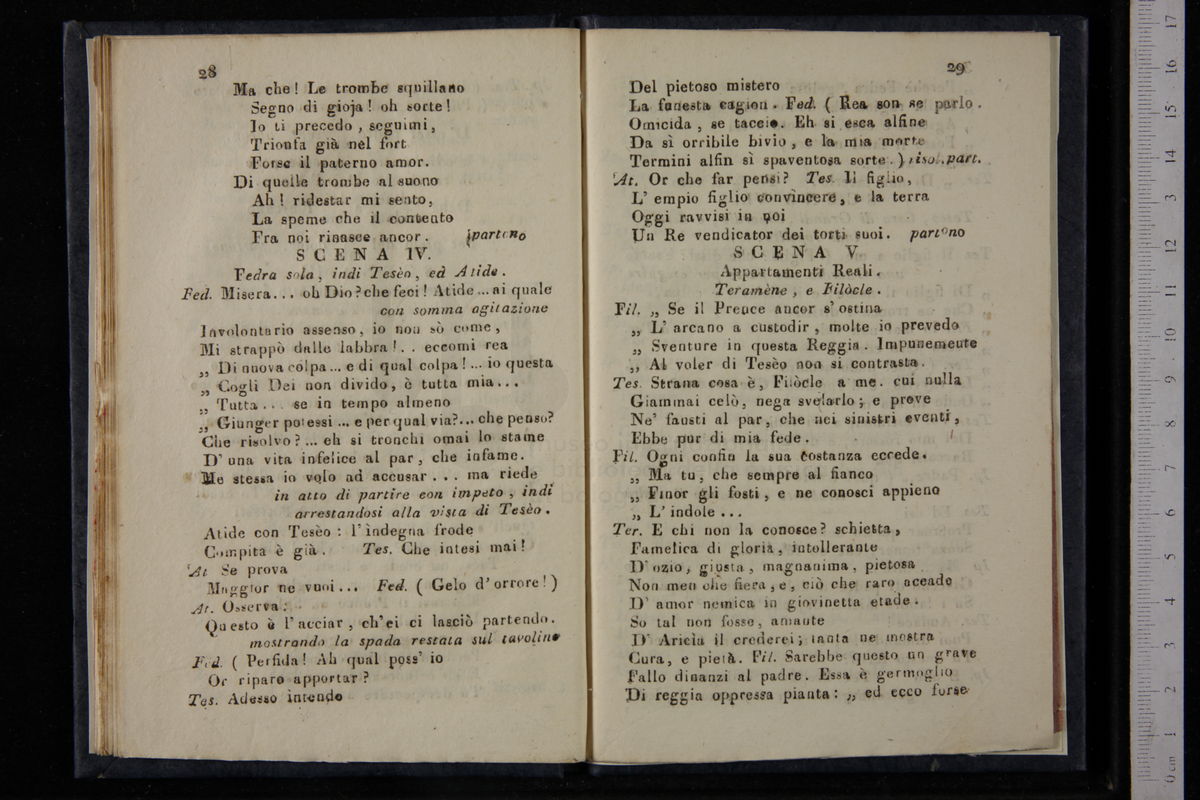 28
Ma che! Le trombe squillano
Segno di gioja! oh sorte!
Io ti precedo, seguimi,
Trionfa già nel fort
Forse il paterno amor.
Di quelle trombe al suono
Ah! ridestar mi sento,
La speme che il contento
Fra noi rinasce ancor. partono
SCENA IV.
Fedra sola, indi Tesèo, ed Atide.
Fed. Misera... oh Dio? che feci! Atide... ai quale
con somma agitazione
Involontario assenso, io non sò come,
Mi strappò dalle labbra!.. eccomi rea
„ Di nuova colpa... e di qual colpa!... io questa
„ Cogli Dei non divido, è tutta mia...
„ Tutta... se in tempo almeno
„ Giunger potessi... e per qual via?... che penso?
Che risolvo?... eh si tronchi omai lo stame
D' una vita infelice al par, che infame.
Me stessa io volo ad accusar... ma riede
in atto di partire con impeto, indi
arrestandosi alla vista di Tesèo.
Atide con Tesèo: l'indegna frode
Compita è già. Tes. Che intesi mai!
At. Se prova
Maggior ne vuoi... Fed. (Gelo d'orrore!)
At. Osserva:
Questo è l'acciar, ch'ei ci lasciò partendo.
mostrando la spada restata sul tavolino
Fed. (Perfida! Ah qual poss' io
Or riparo apportar?
Tes. Adesso intendo
29
Del pietoso mistero
La funesta cagion. Fed. (Rea son se parlo.
Omicida, se taccio. Eh si esca alfine
Da sì orribile bivio, e la mia morte
Termini alfin sì spaventosa sorte.) risol. part.
At. Or che far pensi? Tes. Il figlio,
L' empio figlio convincere, e la terra
Oggi ravvisi in noi
Un Re vendicator dei torti suoi. partono
SCENA V
Appartamenti Reali.
Teramène, e Filòcle.
Fil. „ Se il Prence ancor s' ostina
„ L' arcano a custodir, molte io prevedo
„ Sventure in questa Reggia. Impunemente
„ Al voler di Tesèo non si contrasta.
Tes. Strana cosa è, Filòcle a me. cui nulla
Giammai celò, nega svelarlo; e prove
Ne' fausti al par, che nei sinistri eventi,
Ebbe pur di mia fede.
Fil. Ogni confin la sua costanza eccede.
„ Ma tu, che sempre al fianco
„ Finor gli fosti, e ne conosci appieno
„ L' indole...
Ter. E chi non la conosce? schietta,
Famelica di gloria, intollerante
D' ozio, giusta, magnanima, pietosa
Non men che fiera, e, ciò che raro accade
D' amor nemica in giovinetta etade.
So tal non fosse, amante
D' Aricia il crederei; tanta ne mostra
Cura, e pietà. Fil. Sarebbe questo un grave
Fallo dinanzi al padre. Essa è germoglio
Di reggia oppressa pianta: „ ed ecco forse